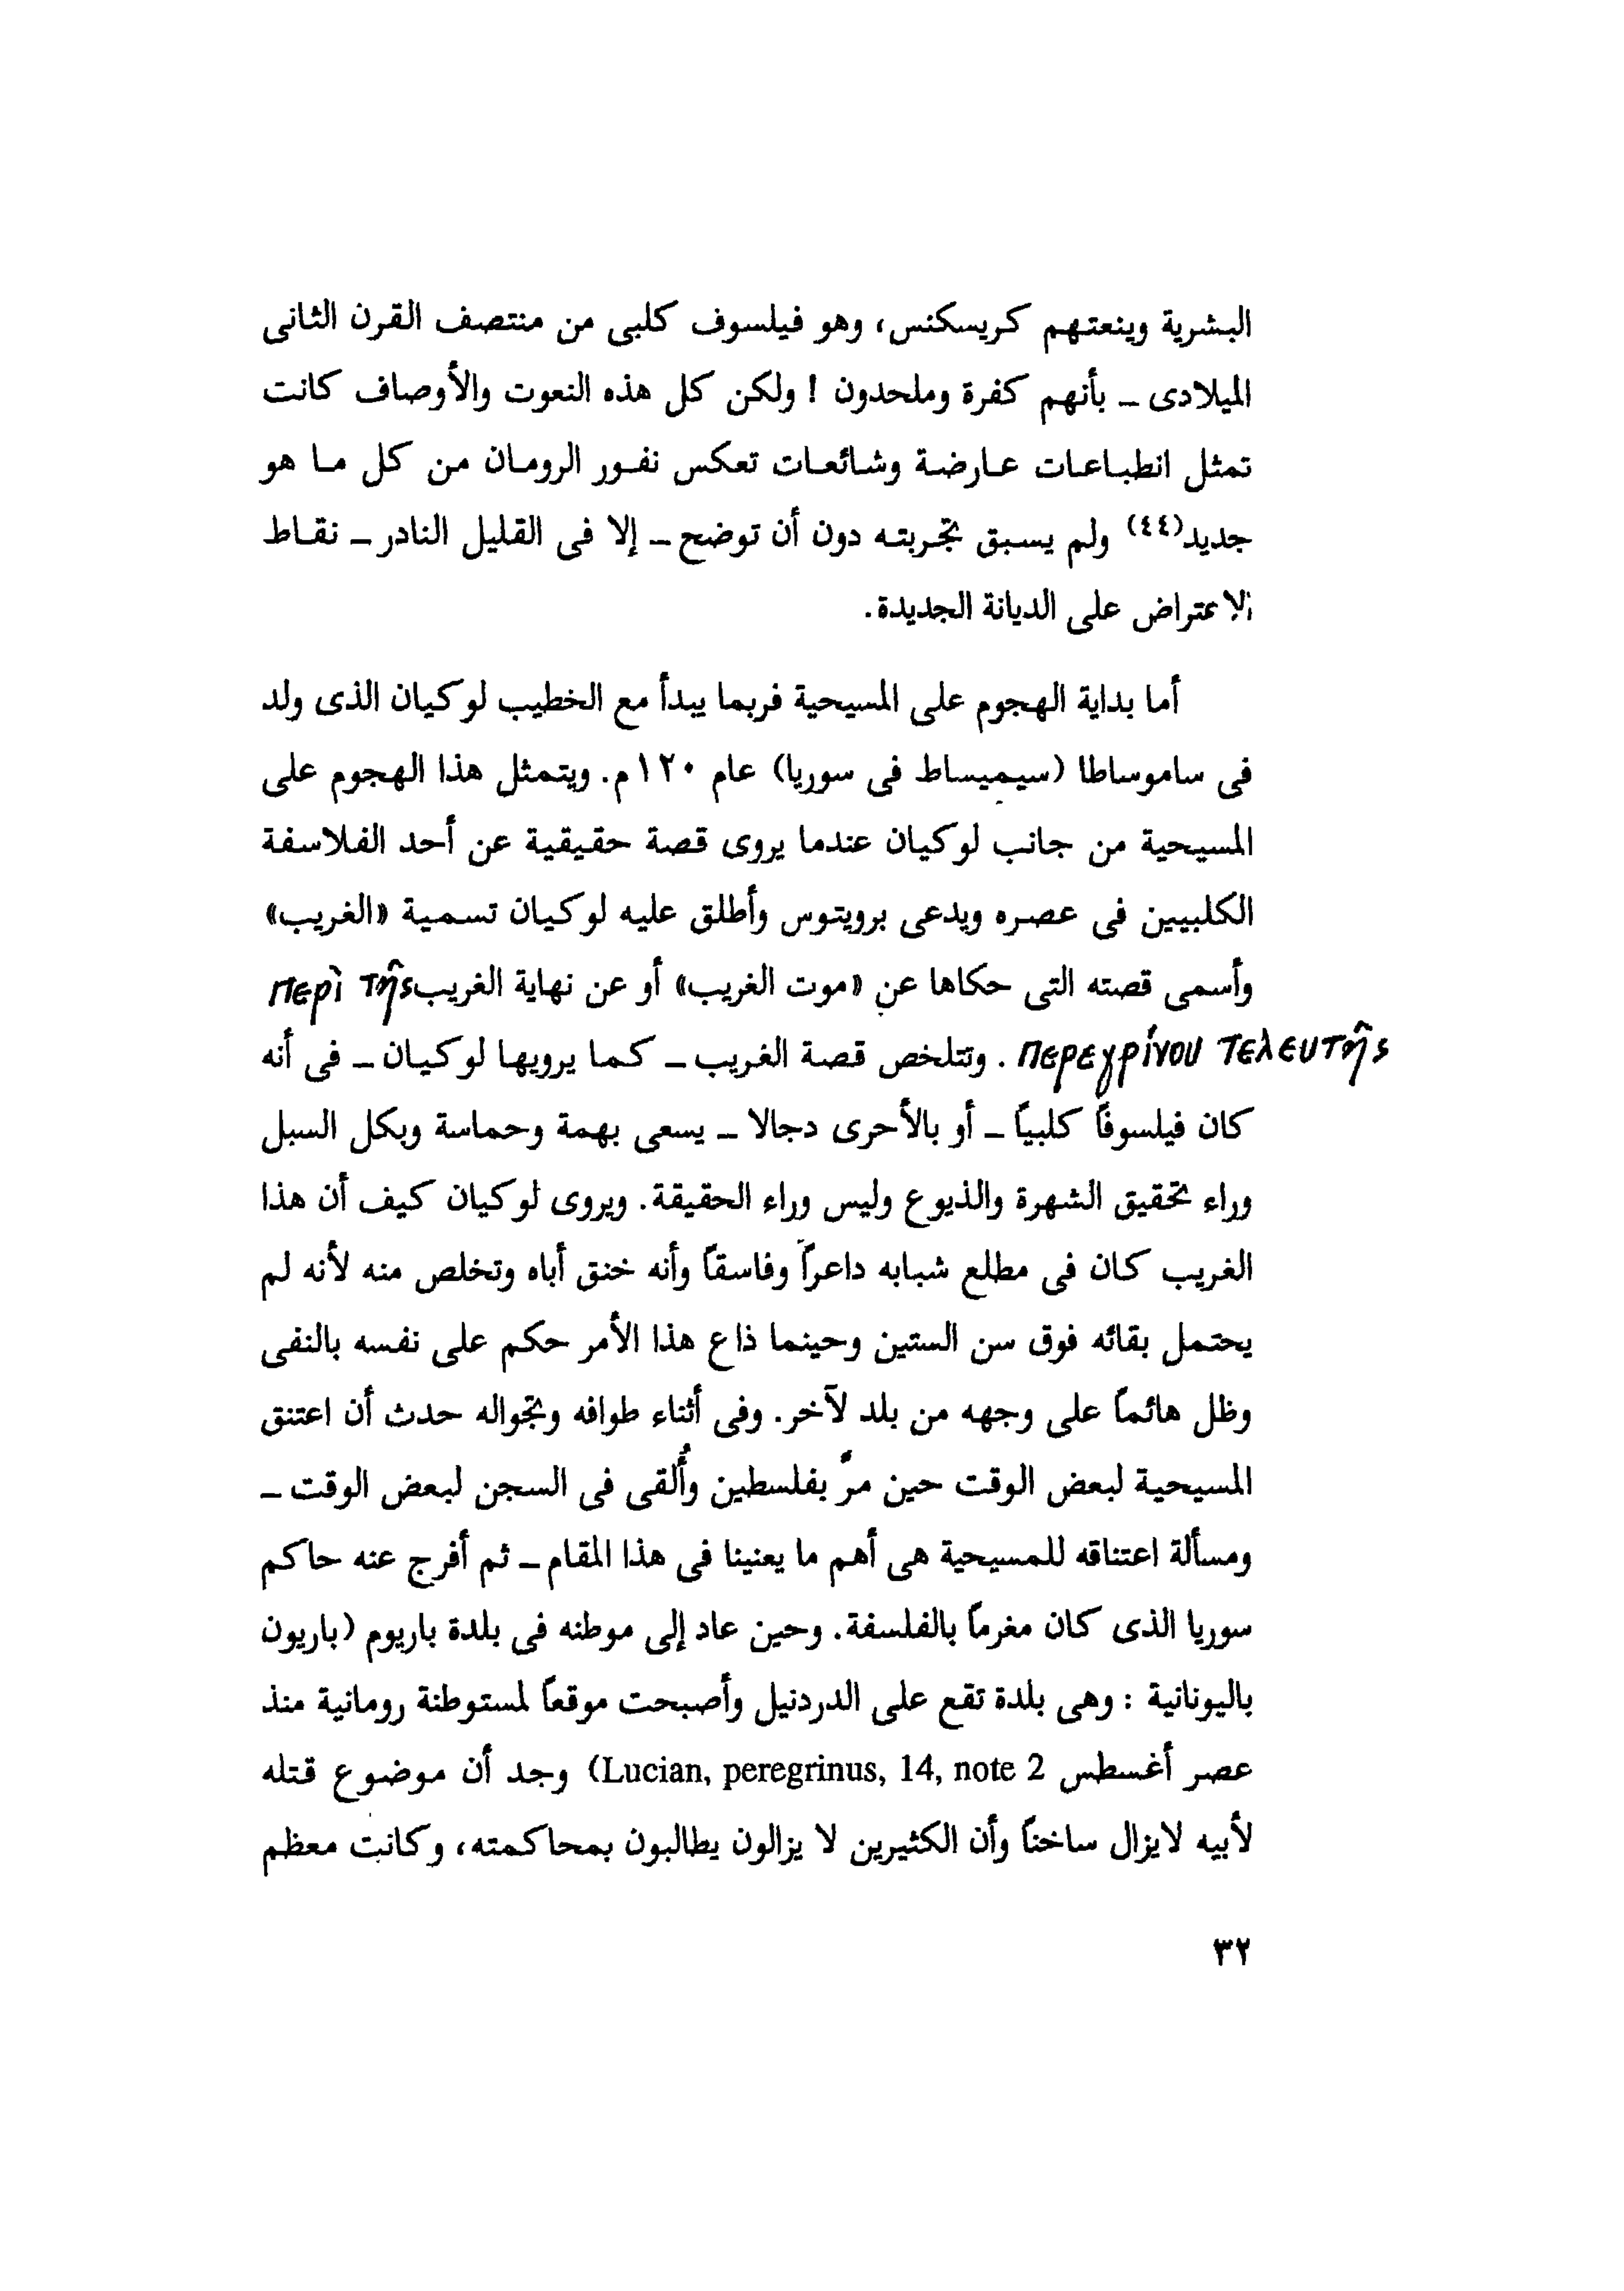 البشرية وينعتهم كريسكنس، وهو فيلسوف كلبى من منتصف القرن الثانى
الميلادى ـ بأنهم كفرة وملحدون ! ولكن كل هذه النعوت والأوصاف كانت
تمثل انطباعات عارضة وشائعات تعكس نفور الرومان من كل ما هو
جديد(٤٤) ولم يسبق تجربته دون أن توضح ـ إلا فى القليل النادر ـ نقاط
الاعتراض على الديانة الجديدة.
أما بداية الهجوم على المسيحية فربما يبدأ مع الخطيب لوكيان الذى ولد
فى ساموساطا (سيميساط فى سوريا) عام ١٢٠م. ويتمثل هذا الهجوم على
المسيحية من جانب لوكيان عندما يروى قصة حقيقية عن أحد الفلاسفة
الكلبيين فى عصره ويدعى برويتوس وأطلق عليه لوكيان تسمية «الغريب»
وأسمى قصته التى حكاها عن «موت الغريب» أو عن نهاية الغريب περὶ τῆς
περεγρίνου τελευτῆς . وتتلخص قصة الغريب ـ كما يرويها لوكيان ـ فى أنه
كان فيلسوفاً كلبياً ـ أو بالأحرى دجالا ـ يسعى بهمة وحماسة وبكل السبل
وراء تحقيق الشهرة والذيوع وليس وراء الحقيقة. ويروى لوكيان كيف أن هذا
الغريب كان فى مطلع شبابه داعراً وفاسقاً وأنه خنق أباه وتخلص منه لأنه لم
يحتمل بقائه فوق سن الستين وحينما ذاع هذا الأمر حكم على نفسه بالنفى
وظل هائماً على وجهه من بلد لآخر. وفى أثناء طوافه وتجواله حدث أن اعتنق
المسيحية لبعض الوقت حين مرّ بفلسطين وأُلقى فى السجن لبعض الوقت ـ
ومسألة اعتناقه للمسيحية هى أهم ما يعنينا فى هذا المقام ـ ثم أفرج عنه حاكم
سوريا الذى كان مغرماً بالفلسفة. وحين عاد إلى موطنه فى بلدة باريوم (باريون
باليونانية : وهى بلدة تقع على الدردنيل وأصبحت موقعاً لمستوطنة رومانية منذ
عصر أغسطس Lucian, peregrinus, 14, note 2) وجد أن موضوع قتله
لأبيه لايزال ساخناً وأن الكثيرين لا يزالون يطالبون بمحاكمته، وكانت معظم
٣٢